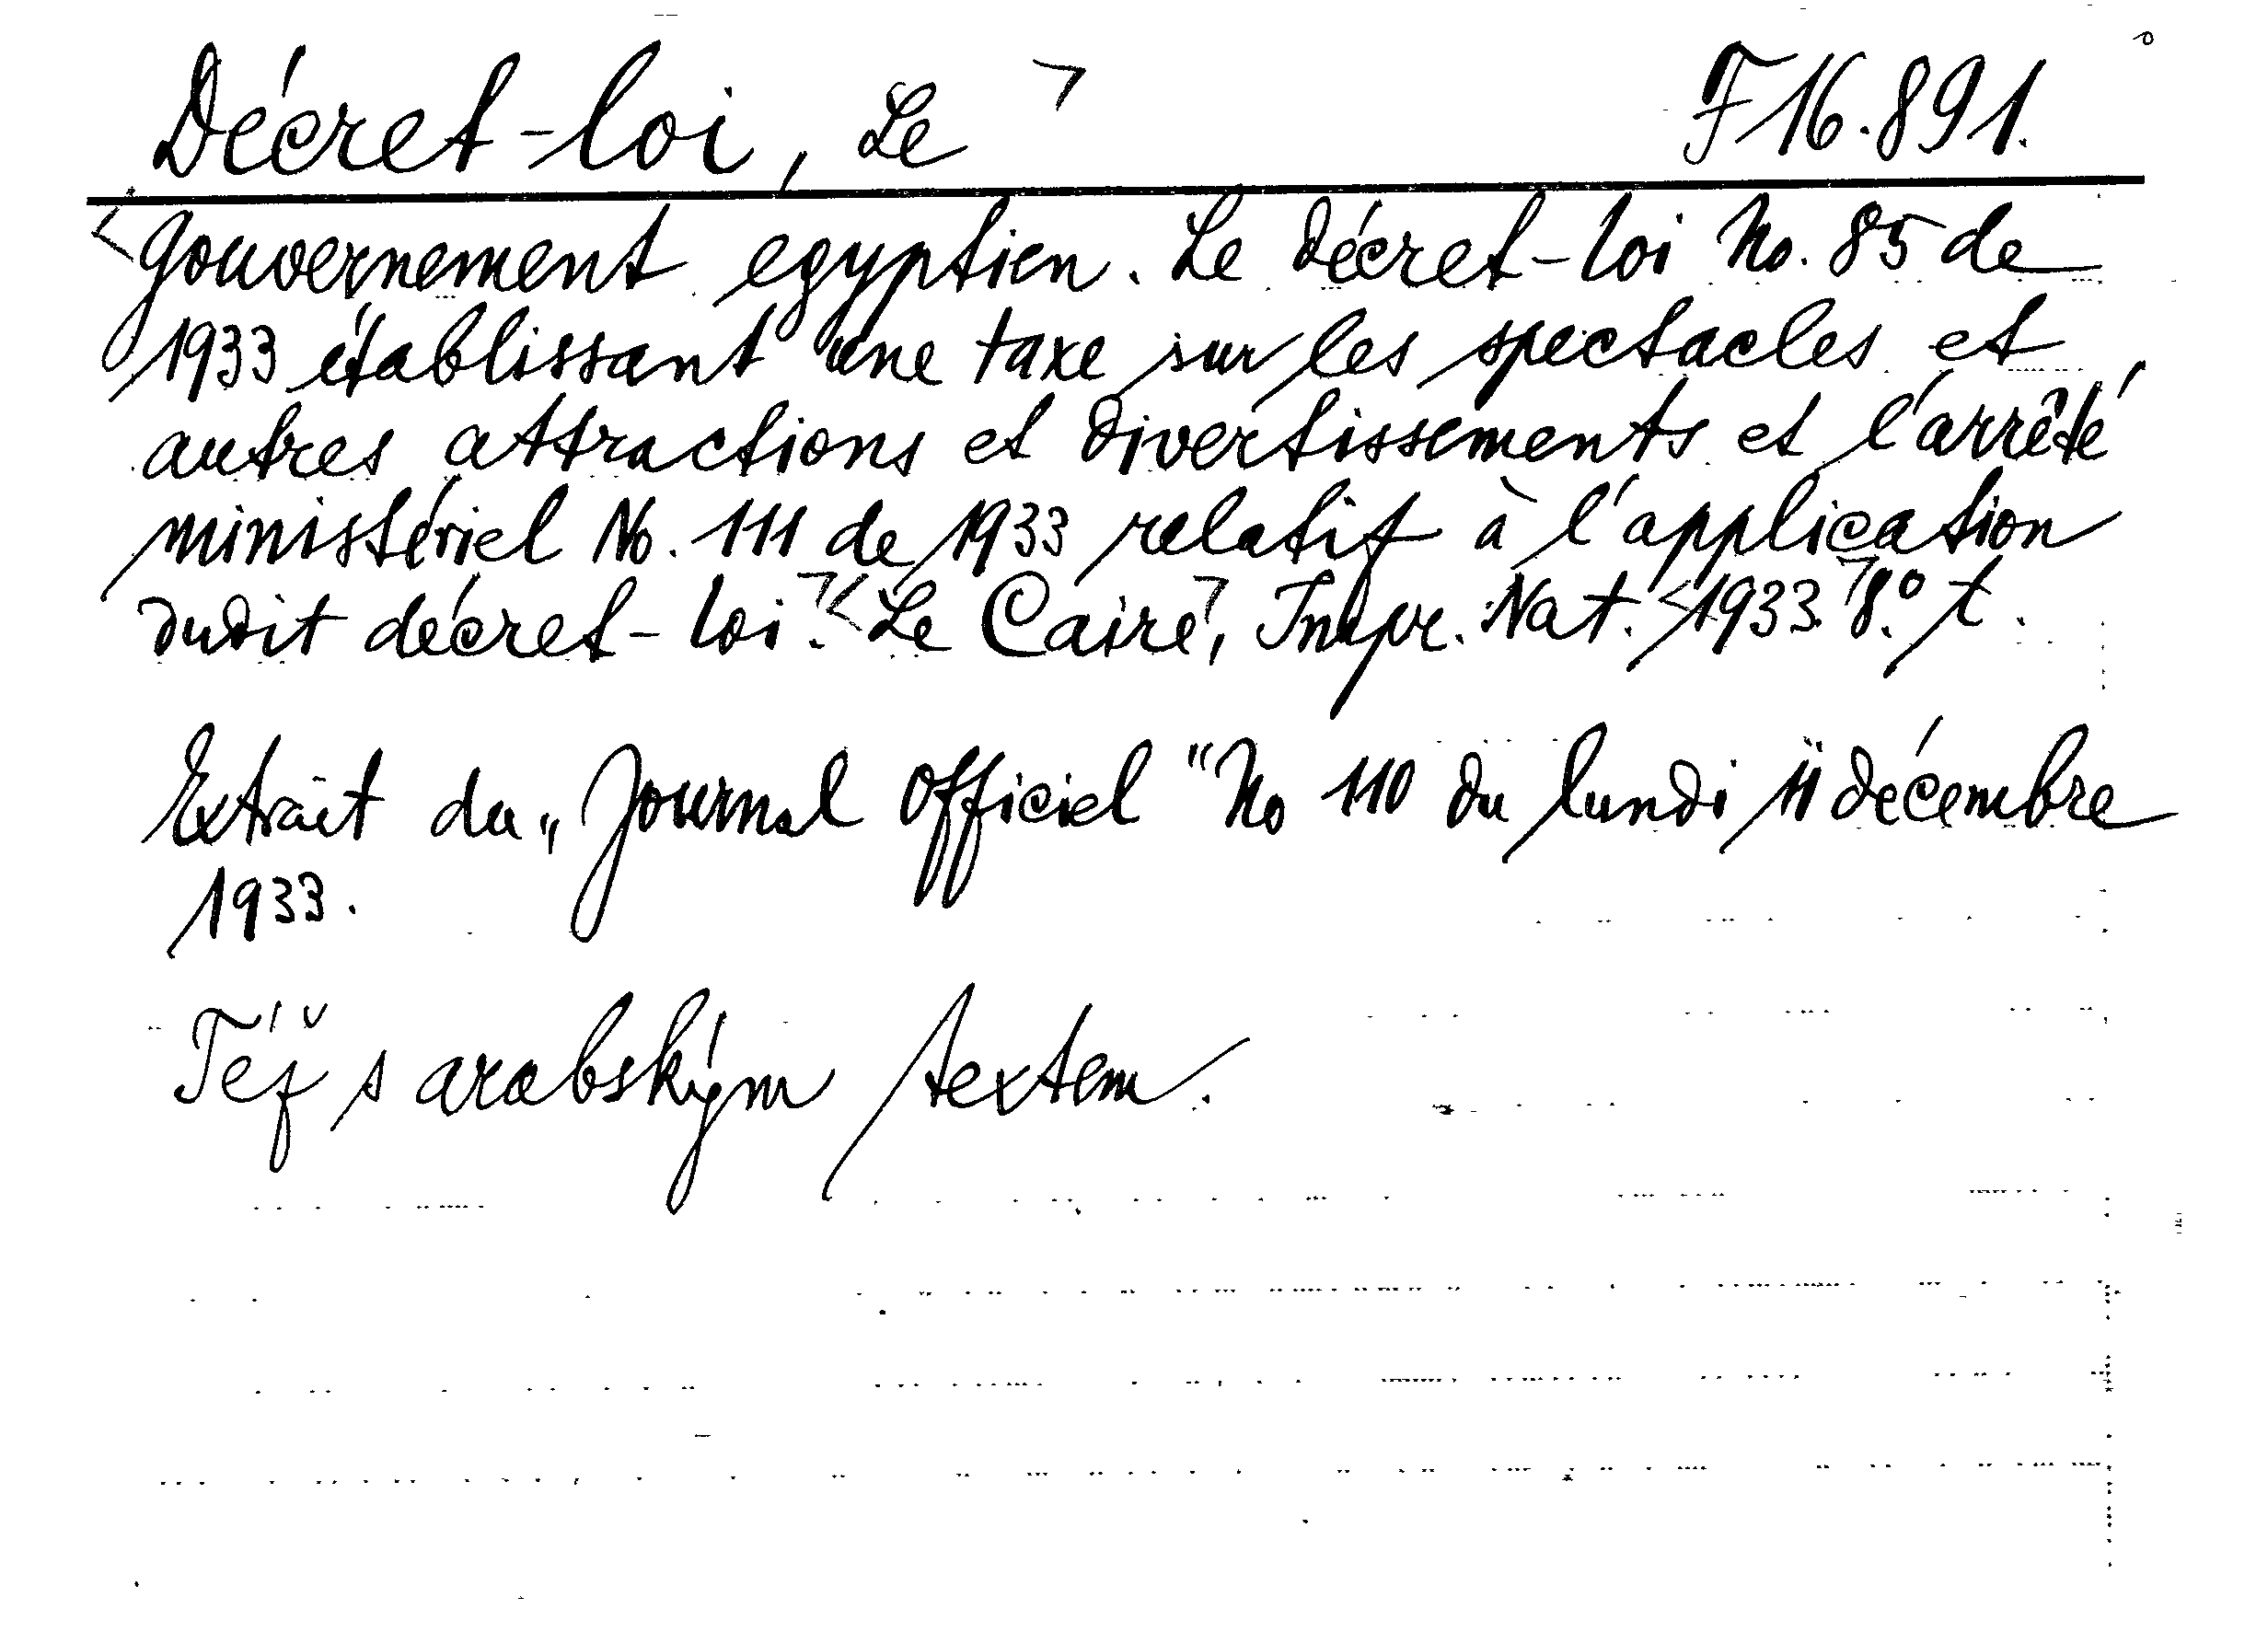 Décret-loi, Le F 16.891.
Gouvernement egyptien. Le décret-loi No. 85 de
1933 établissant une taxe sur les spectacles et
autres attractions et divertissements et l'arrêté
ministériel No. 111 de 1933 relatif à l'application
dudit décret-loi. Le Caire, Impr. Nat. 1933. 8.° t.
Extrait du „Journal Officiel" No 110 du lundi 11 décembre
1933.
Též s arabským textem.